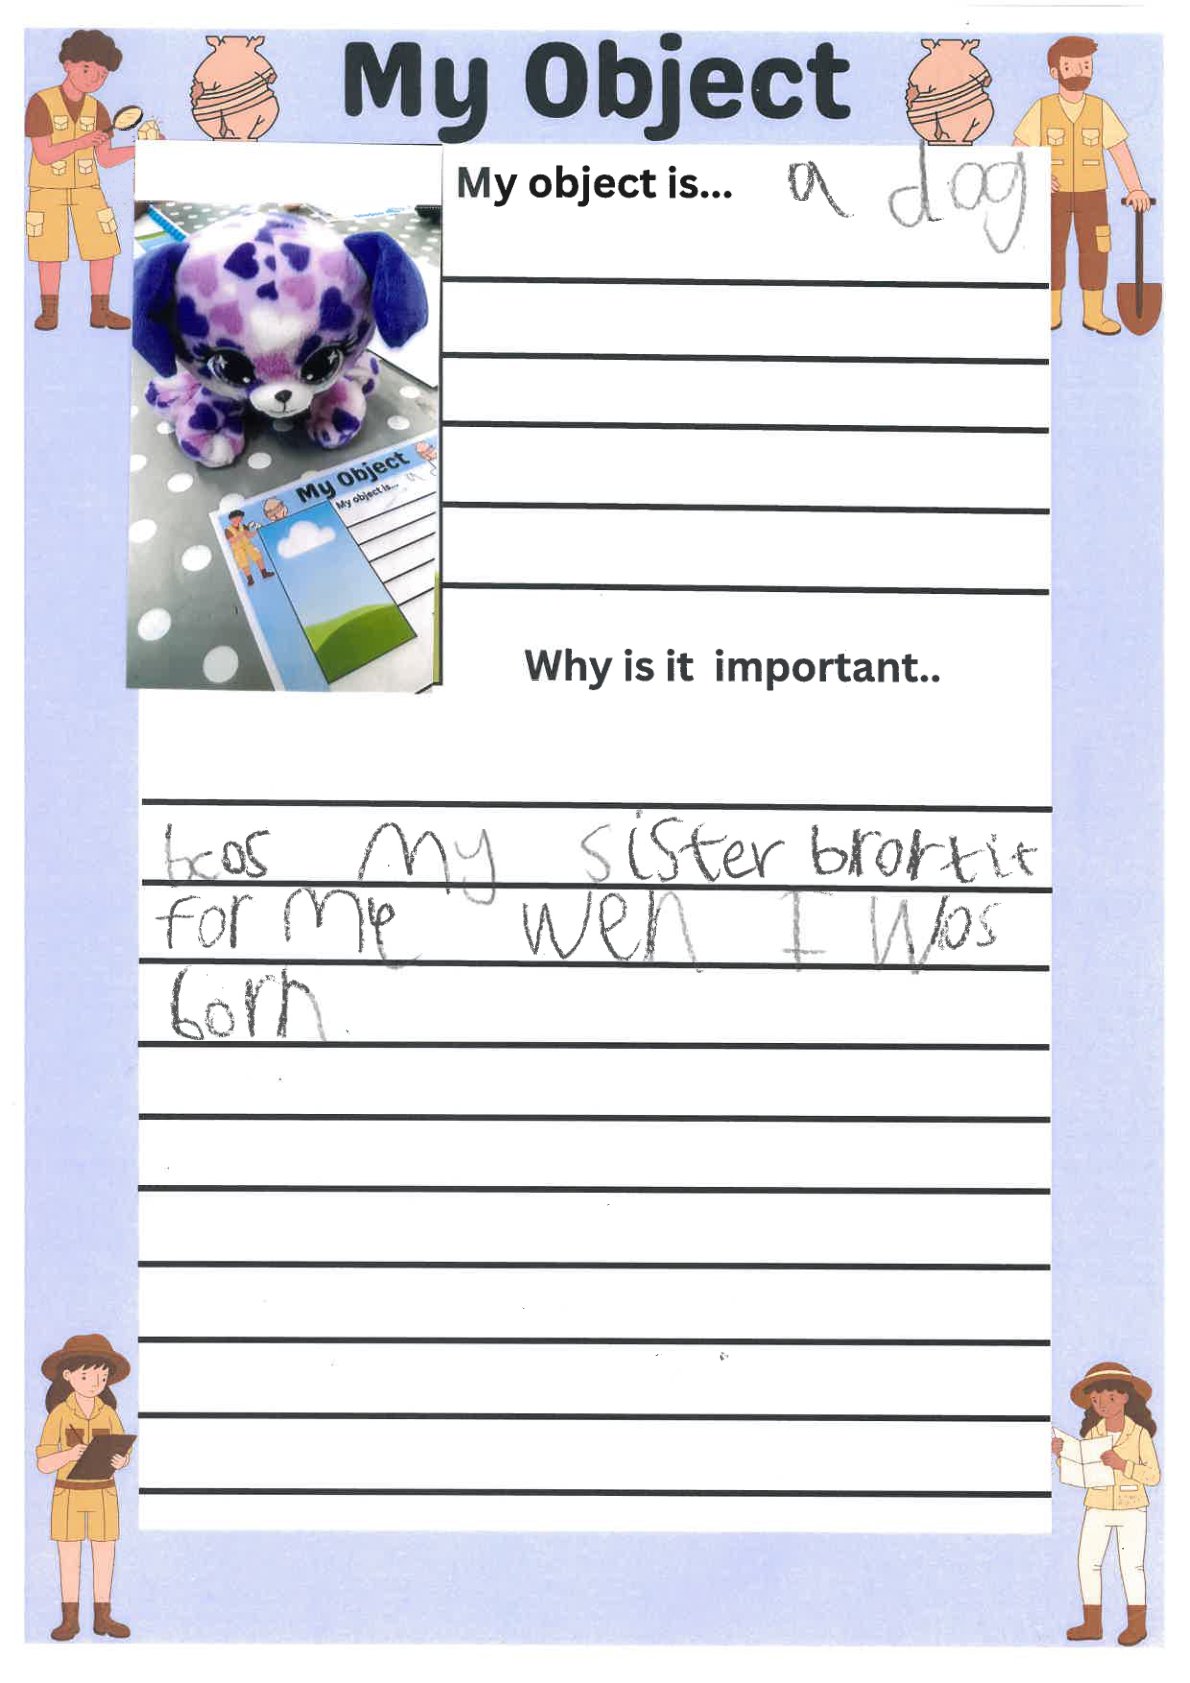 My Object
My object is... a dog
My Object
My object is... a
Why is it important..
bcos my sister brortit
for me wen I wos
born.